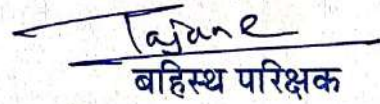 Tajane
बहिस्थ परिक्षक